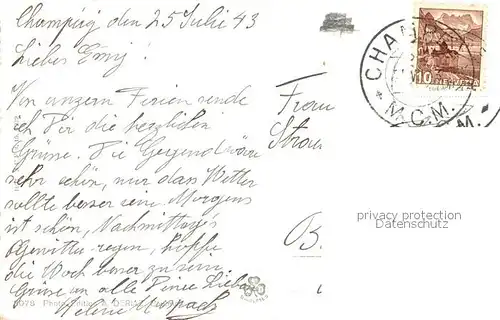 Champéry den 25 Julie 43
Lieber Emy.
Von unzern Ferien sende
ich Dir die herzlichen
Grüsse. Die Gegend wäre
sehr schön, nur das Wetter
sollte besser sein. Morgens
ist schön, Nachmittags
Gewitter regen, hoffe
die Woch besser zu sein.
Grüsse an alle Deine Lieben
Helene
Frau
B.
CHAM
M.C.M.
10
HELVETIA
privacy protection
Datenschutz